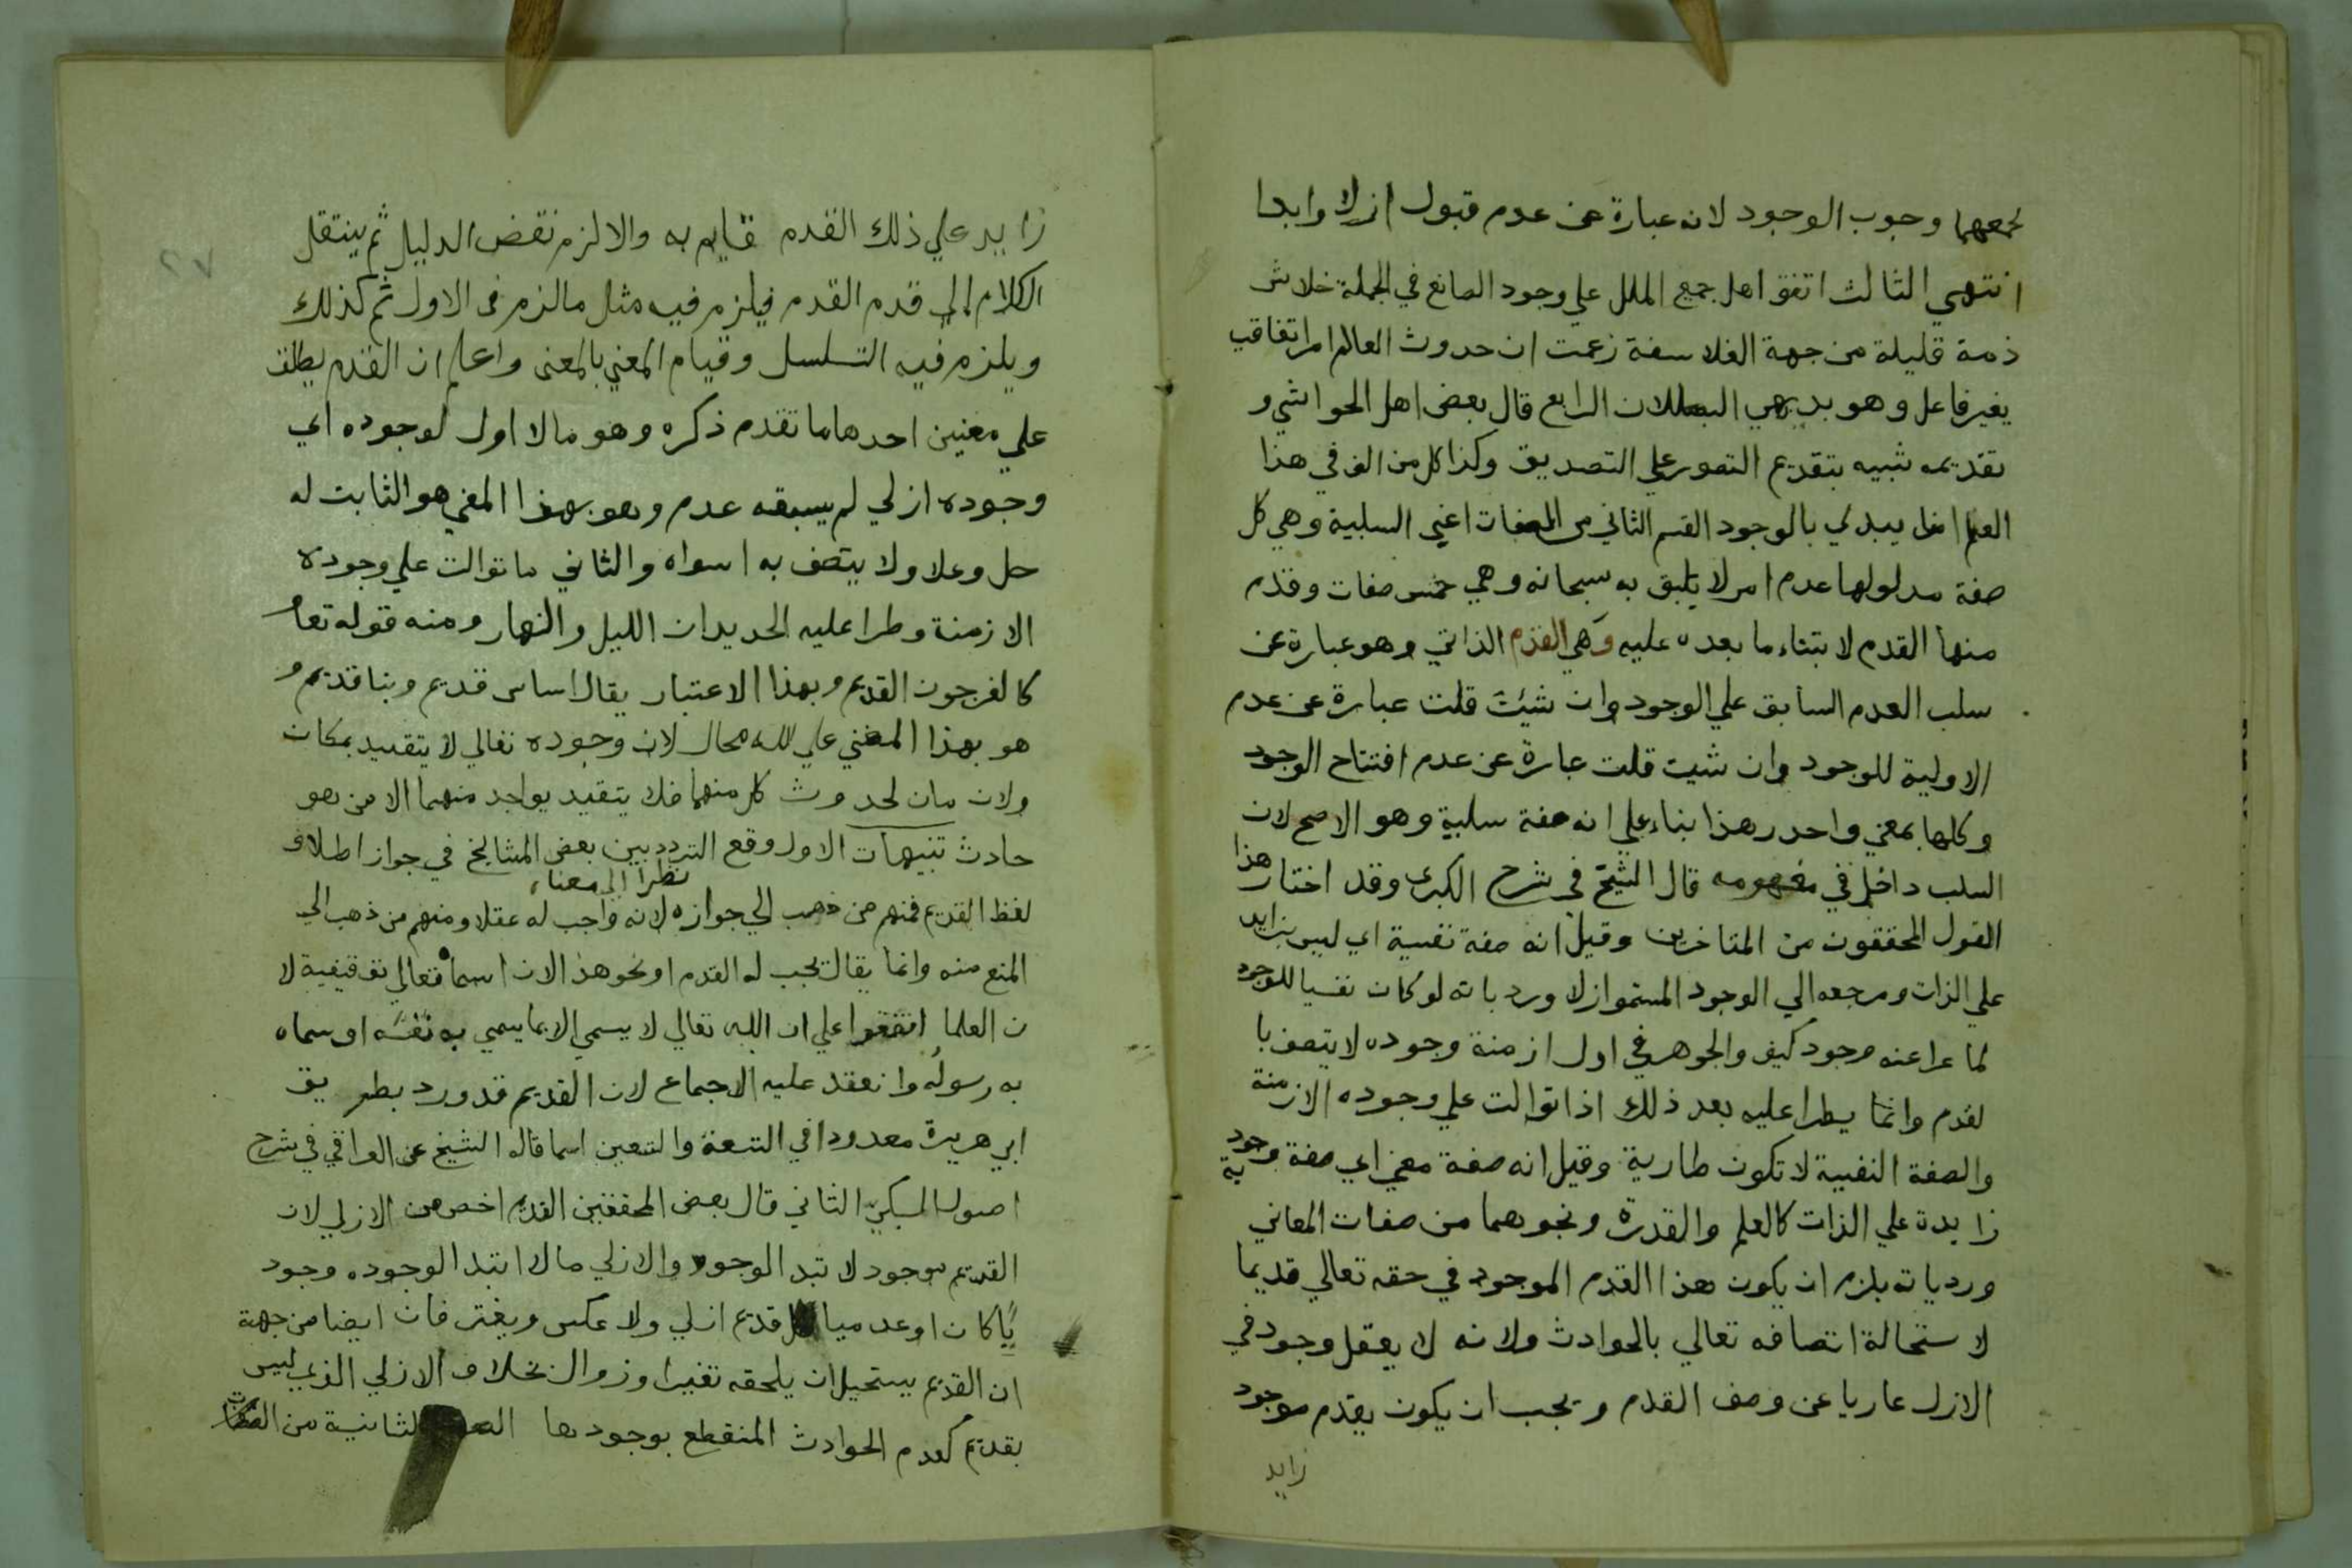 لجمعهما وجوب الوجود لانه عبارة عن عدم قبول ازلا وابدا
انتهي الثالث اتفق اهل جميع الملل علي وجود الصانع في الجملة خلا شر
ذمة قليلة من جهة الفلاسفة زعمت ان حدوث العالم امر اتفاقي
بغير فاعل وهو بديهي البطلان الرابع قال بعض اهل الحواشي و
تقديمه شبيه بتقديم التصور علي التصديق وكذا كل من الف في هذا
العلم انما يبدي بالوجود القسم الثاني من الصفات اعني السلبية وهي كل
صفة مدلولها عدم امر لا يليق به سبحانه وهي خمس صفات وقدم
منها القدم لابتناء ما بعده عليه وهي القدم الذاتي وهو عبارة عن
سلب العدم السابق علي الوجود وان شيت قلت عبارة عن عدم
الاولية للوجود وان شيت قلت عبارة عن عدم افتتاح الوجود
وكلها بمعني واحد وهذا بناء علي انه صفة سلبية وهو الاصح لان
السلب داخل في مفهومه قال الشيخ في شرح الكبري وقد اختار هذا
القول المحققون من المتاخرين وقيل انه صفة نفسية اي ليس بزايد
علي الذات ومرجعه الي الوجود المستمر ازلا ورد بانه لو كان نفسيا للوجود
لما عرا عنه موجود كيف والجوهر في اول ازمنة وجوده لا يتصف با
لقدم وانما يطرا عليه بعد ذلك اذا توالت علي وجوده الازمنة
والصفة النفسية لا تكون طارية وقيل انه صفة معني اي صفة وجودية
زايدة علي الذات كالعلم والقدرة ونحوهما من صفات المعاني
ورد بانه يلزم ان يكون هذا القدم الموجود في حقه تعالي قديما
لاستحالة اتصافه تعالي بالحوادث ولانه لا يعقل وجود في
الازل عاريا عن وصف القدم ويجب ان يكون بقدم موجود
زايد
٢٧
زايد علي ذلك القدم قايم به والا لزم نقض الدليل ثم ينتقل
الكلام الي قدم القدم فيلزم فيه مثل ما لزم في الاول ثم كذلك
ويلزم فيه التسلسل وقيام المعني بالمعني واعلم ان القدم يطلق
علي معنين احدهما ما تقدم ذكره وهو ما لا اول لوجوده اي
وجوده ازلي لم يسبقه عدم وهو بهذا المعني هو الثابت له
جل وعلا ولا يتصف به اسواه والثاني ما توالت علي وجوده
الازمنة وطرا عليه الجديدان الليل والنهار ومنه قوله تعا
كالعرجون القديم وبهذا الاعتبار يقال اساس قديم وبنا قديم و
هو بهذا المعني علي الله محال لان وجوده تعالي لا يتقيد بمكان
ولا زمان لحدوث كل منهما فلا يتقيد بواحد منهما الا من هو
حادث تنبيهات الاول وقع التردد بين بعض المشايخ في جواز اطلاق
نظرا الي معناه
لفظ القديم فمنهم من ذهب الي جوازه لانه واجب له عقلا ومنهم من ذهب الي
المنع منه وانما يقال يجب له القدم او نحو هذا لان اسماه تعالي توقيفية لا
ن العلما اتفقوا علي ان الله تعالي لا يسمي الا بما يسمي به نفسه او سماه
به رسوله وانعقد عليه الاجماع لان القديم قد ورد بطريق
ابي هريرة معدودا في التسعة والتسعين اسما قاله الشيخ عن العراقي في شرح
اصول السبكي الثاني قال بعض المحققين القديم اخص من الازلي لان
القديم موجود لا تبد الوجود والازلي ما لا ابتدا لوجوده وجود
يا كان او عدميا كل قديم ازلي ولا عكس ويفترقان ايضا من جهة
ان القديم يستحيل ان يلحقه تغيرا وزوال بخلاف الازلي الذي ليس
بقديم كعدم الحوادث المنقطع بوجودها الثانية من الصفات